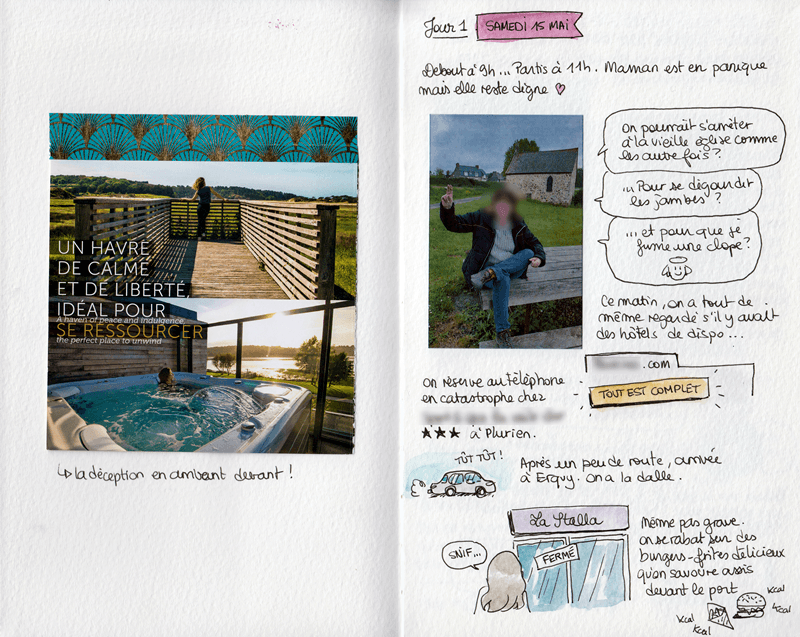 UN HAVRE
DE CALME
ET DE LIBERTÉ,
IDÉAL POUR
A haven of peace and indulgence
SE RESSOURCER
the perfect place to unwind
↳ la déception en arrivant devant !
Jour 1 SAMEDI 15 MAI
Debout à 9h... Partis à 11h. Maman est en panique
mais elle reste digne ♡
On pourrait s'arrêter
à la vieille église comme
les autre fois ?
... Pour se dégourdir
les jambes ?
... et pour que je
fume une clope ?
Ce matin, on a tout de
même regardé s'il y avait
des hôtels de dispo...
.com
TOUT EST COMPLET
on réserve au téléphone
en catastrophe chez
★★★ à Plurien.
TÛT TÛT !
Après un peu de route, arrivée
à Erquy. On a la dalle.
La Stalla
FERMÉ
SNIF...
Même pas grave.
On se rabat sur des
burgers-frites délicieux
qu'on savoure assis
devant le port
Kcal
Kcal
Kcal
Kcal